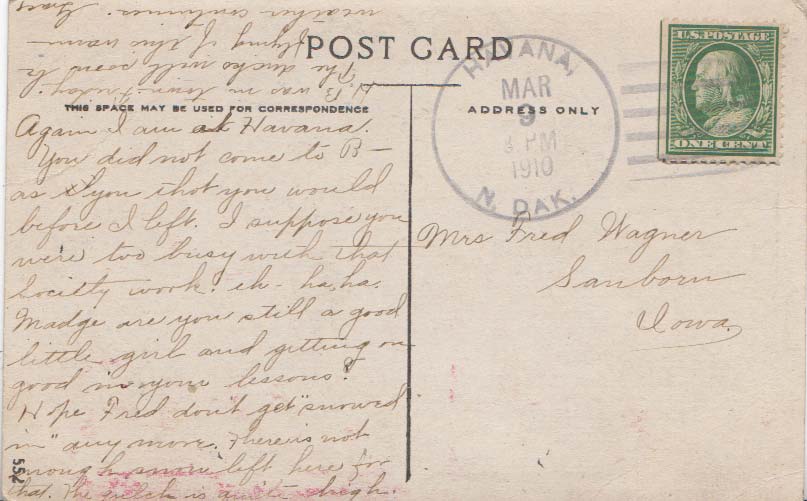 POST CARD
THIS SPACE MAY BE USED FOR CORRESPONDENCE
ADDRESS ONLY
U.S. POSTAGE
ONE CENT
HAVANA,
MAR
9
PM
1910
N. DAK.
Mrs Fred Wagner
Sanborn
Iowa
Again I am at Havana.
You did not come to B—
as you thot you would
before I left. I suppose you
were too busy with that
Society work. eh- ha, ha.
Madge are you still a good
little girl and getting on
good in your lessons?
Hope Fred don't get "snowed
in" any more. There is not
enough snow left here for
that. The is quite high.
H.B. was in town Friday.
The ducks will soon be
flying if this warm
weather continues.
552